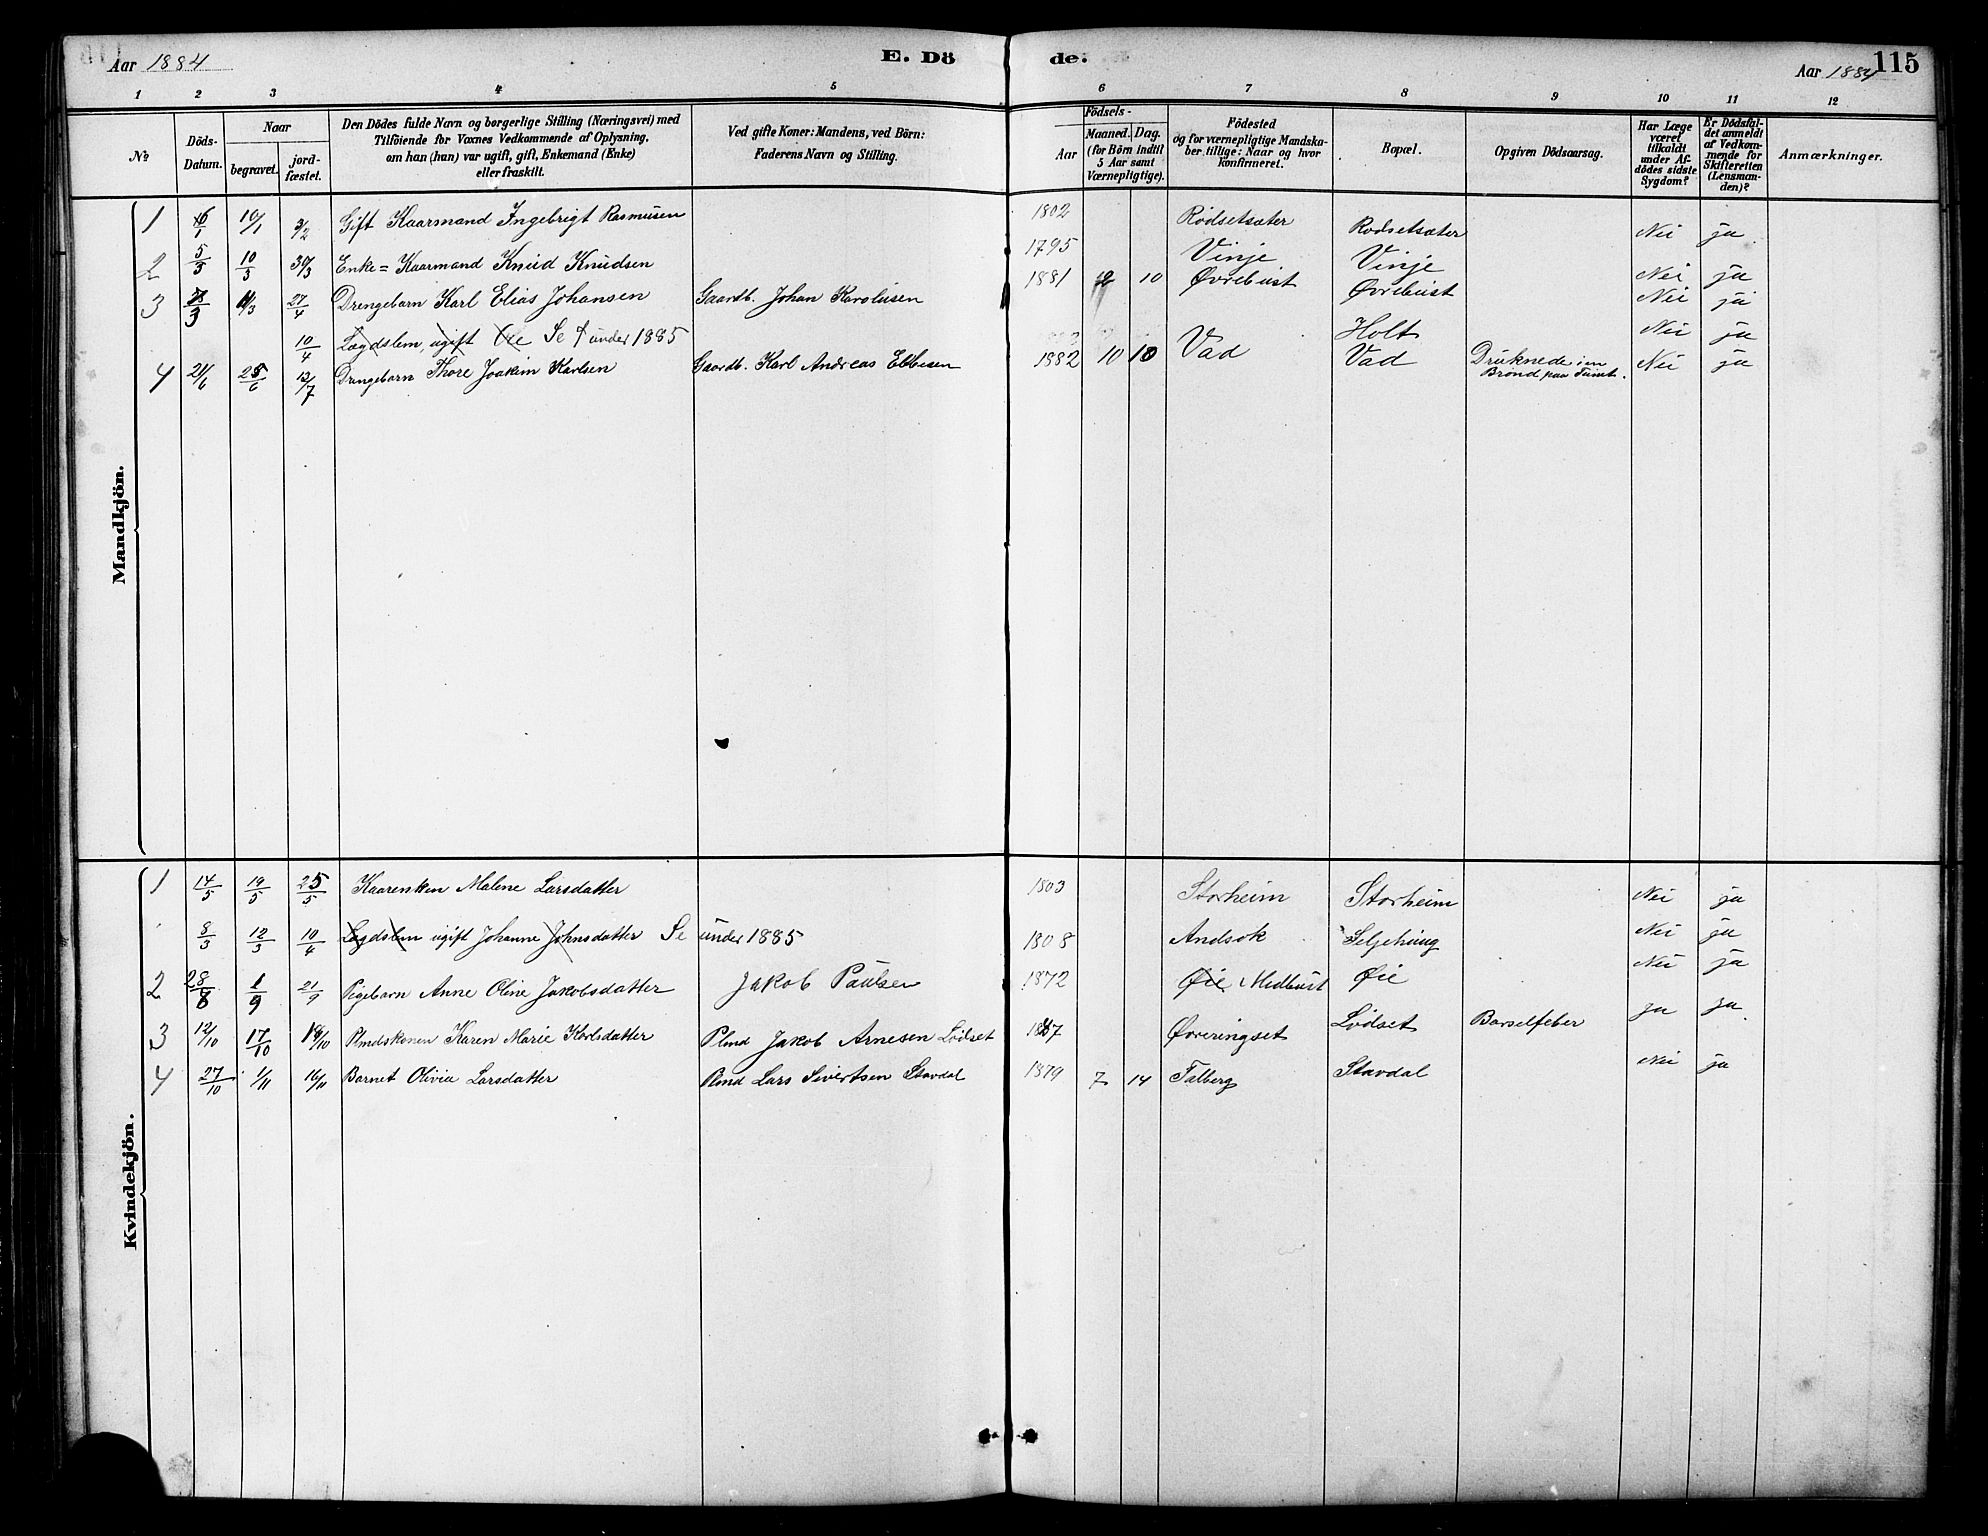 Aar 1884 E. Dö de. Aar 1884 115
1 2 3 4 5 6 7 8 9 10 11 12
No
Döds-
Datum.
Naar
begravet.
jord-
fæstet.
Den Dödes fulde Navn og borgerlige Stilling (Næringsvei) med
Tilföiende for Voxnes Vedkommende af Oplysning,
om han (hun) var ugift, gift, Enkemand (Enke)
eller fraskilt.
Ved gifte Koner: Mandens, ved Börn:
Faderens Navn og Stilling.
Födsels-
Aar
Maaned. Dag.
(for Börn indtil
5 Aar samt
Værnepligtige).
Födested
og for værnepligtige Mandska-
ber tillige: Naar og hvor
konfirmeret.
Bopæl.
Opgiven Dödsaarsag.
Har Læge
været
tilkaldt
under Af-
dödes sidste
Sygdom?
Er Dödsfal-
det anmeldt
af Vedkom-
mende for
Skifteretten
(Lensman-
den)?
Anmærkninger.
Mandkjön.
1 6/1 10/1 3/2 Gift Kaarmand Ingebrigt Rasmusen 1802 Rödsetsæter Rödsetsæter Nei ja
2 5/3 10/3 30/3 Enke= Kaarmand Knud Knudsen 1795 Vinje Vinje Nei ja
3 8/3 11/3 27/4 Drengebarn Karl Elias Johansen Gaardb. Johan Karolusen 1881 10 Øvrebust Øvrebust Nei ja
10/4 Lægdslem ugift Ole Se † under 1885 Holt Nei ja
4 21/6 25/6 13/7 Drengebarn Thore Joakim Karlsen Gaardb. Karl Andreas Ebbesen 1882 10 10 Vad Vad Druknede i en Brönd paa Tunet. Nei ja
Kvindekjön.
1 14/5 19/5 25/5 Kaarenken Malene Larsdatter 1803 Storheim Storheim Nei ja
8/3 12/3 10/4 Lægdslem ugift Johanne Johnsdatter Se under 1885 1808 Andsok Seljehaug Nei ja
2 28/8 1/9 21/9 Pigebarn Anne Oline Jakobsdatter Jakob Paulsen 1872 Øie Midtbust Øie Nei ja
3 12/10 17/10 19/10 Plmdskonen Karen Marie Karlsdatter Plmd Jakob Arnesen Lödset Øvreringset Lödset Barselfeber ja ja
4 27/10 1/11 16/11 Barnet Olivia Larsdatter Plmd Lars Sivertsen Stavdal 1879 7 14 Talberg Stavdal Nei ja